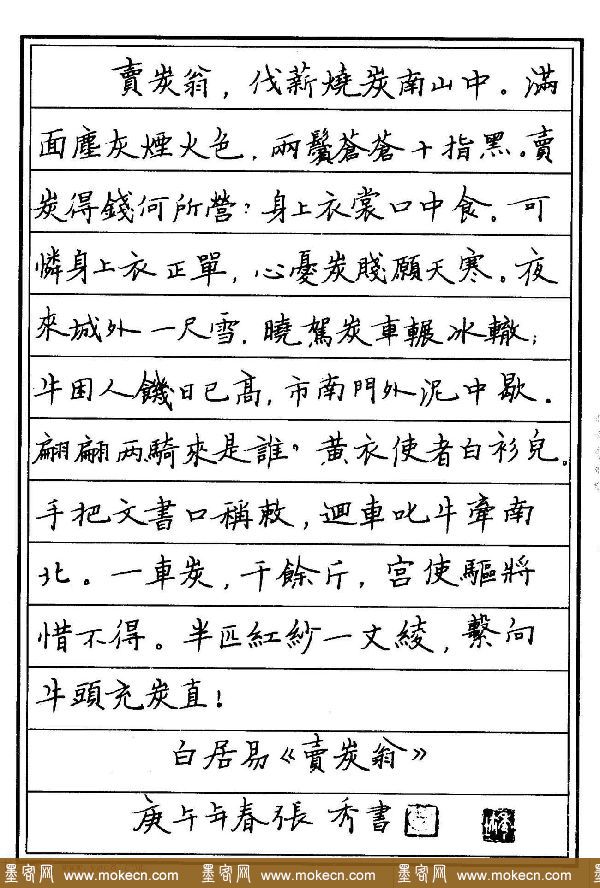 賣炭翁，伐薪燒炭南山中。滿
面塵灰煙火色，兩鬢蒼蒼十指黑。賣
炭得錢何所營？身上衣裳口中食。可
憐身上衣正單，心憂炭賤願天寒。夜
來城外一尺雪，曉駕炭車輾冰轍；
牛困人饑日已高，市南門外泥中歇。
翩翩两騎來是誰？黃衣使者白衫兒。
手把文書口稱敕，迴車叱牛牽南
北。一車炭，千餘斤，宮使驅將
惜不得。半匹紅紗一丈綾，繫向
牛頭充炭直！
白居易《賣炭翁》
庚午年春張 秀書
墨客网 www.mokecn.com 墨客网 www.mokecn.com 墨客网 www.mokecn.com